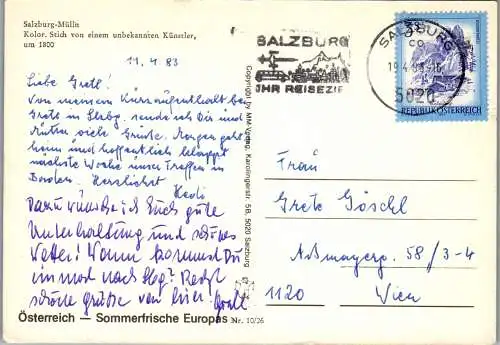 Salzburg-Mülln
Kolor. Stich von einem unbekannten Künstler,
um 1800
11. 4. 83
Liebe Gretl!
Von meinem Kurzaufenthalt bei
Grete in Slzbg. sende ich Dir und
viele Grüße. Morgen geht's
heim und hoffentlich klappt
nächste Woche unser Treffen in
Baden. Herzlichst
Hedi
Dazu wünsche ich Euch gute
Unterhaltung und schönes
Wetter! Wann kommst Du
einmal nach Sbg?
schöne Grüße von hier! Gretl
Österreich — Sommerfrische Europas
Nr. 10/26
Copyright by MM-Verlag, Karolingerstr. 5B, 5020 Salzburg
SALZBURG
IHR REISEZIEL
SALZBURG
5020
REPUBLIK ÖSTERREICH
Frau
Grete Göschl
58/3-4
1120 Wien